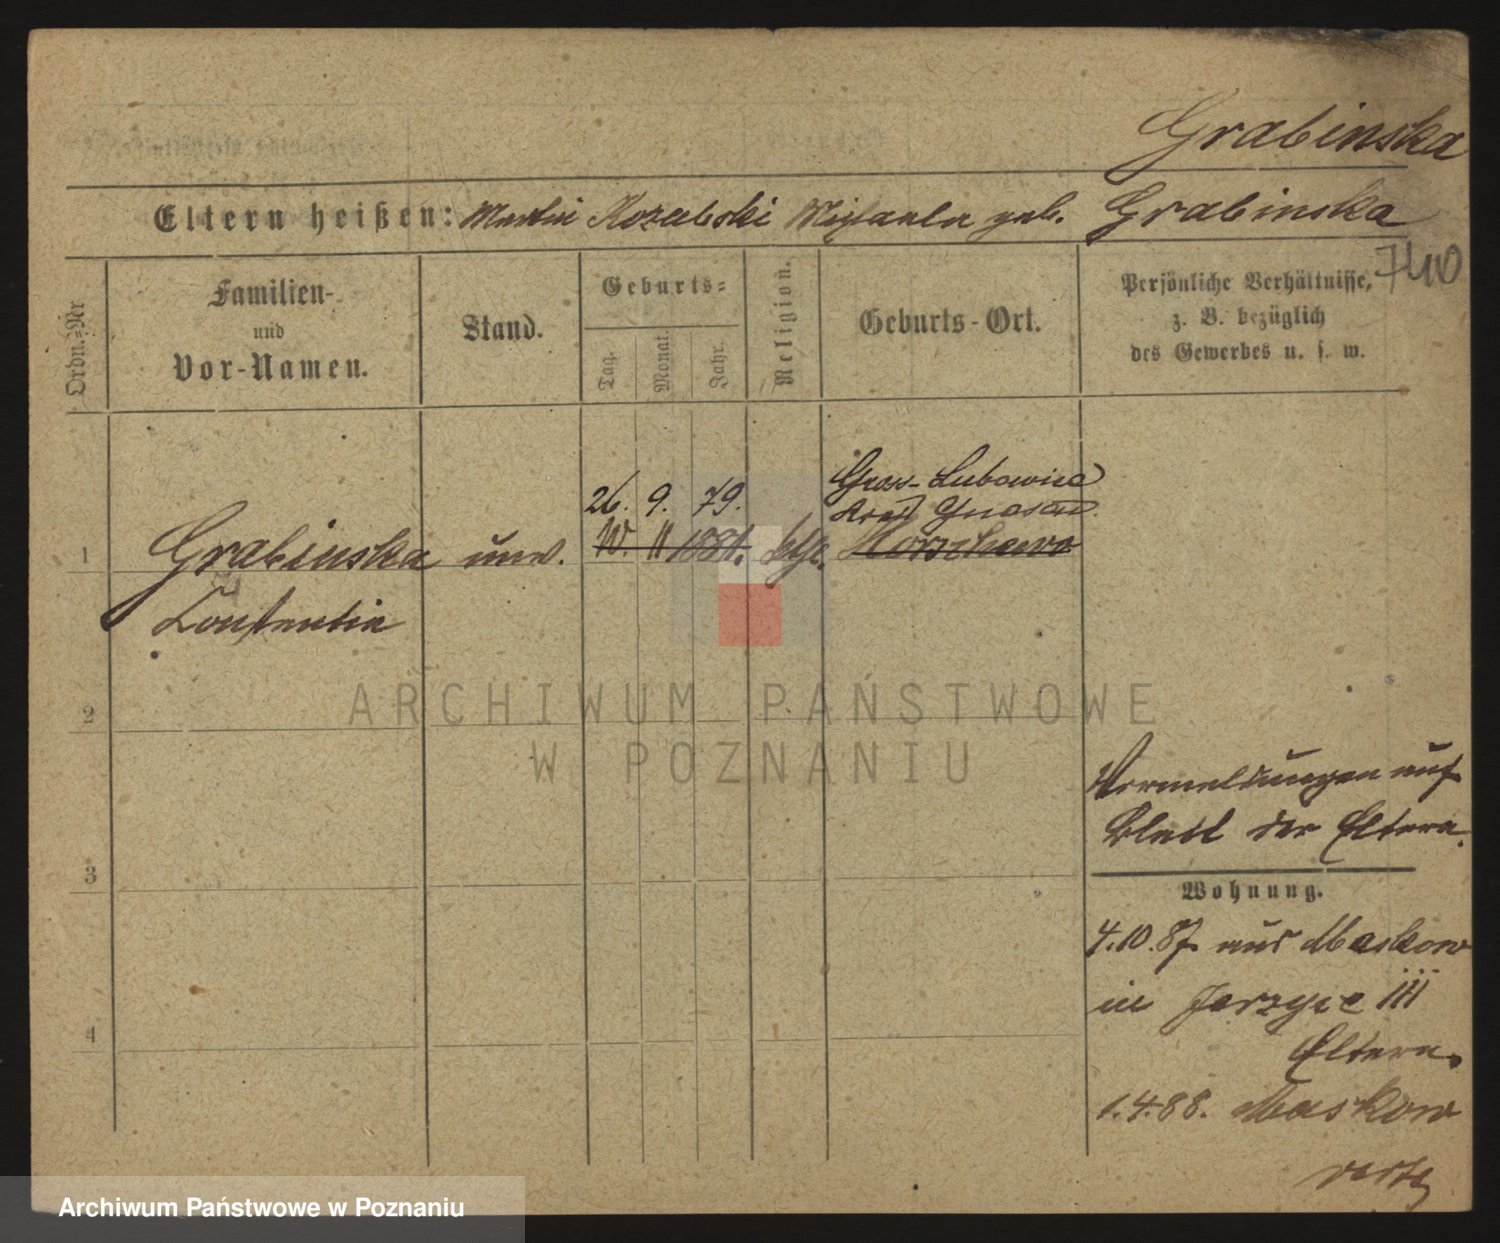 Grabinska
Eltern heißen: Martin Kozalski Michaela geb. Grabinska
7410
Ordn.-Nr
Familien-
und
Vor-Namen.
Stand.
Geburts-
Tag.
Monat.
Jahr.
Religion.
Geburts-Ort.
Persönliche Verhältnisse,
z. B. bezüglich
des Gewerbes u. s. w.
26. 9. 79. Gross-Lubowice
Kreis Gnesen
1 Grabinska unv. 10. 11 1881. kth.
Constantia
2
3
4
Vormeldungen auf
Blatt der Eltern.
Wohnung.
4.10.87. aus Maskow
in Jerzyce 111
Eltern.
1.4.88. Maskow
verte
ARCHIWUM PAŃSTWOWE
W POZNANIU
Archiwum Państwowe w Poznaniu